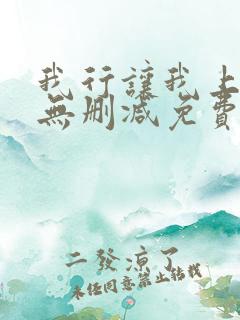 我行讓我上
無刪減免費
二發涼了
未经同意禁止转载